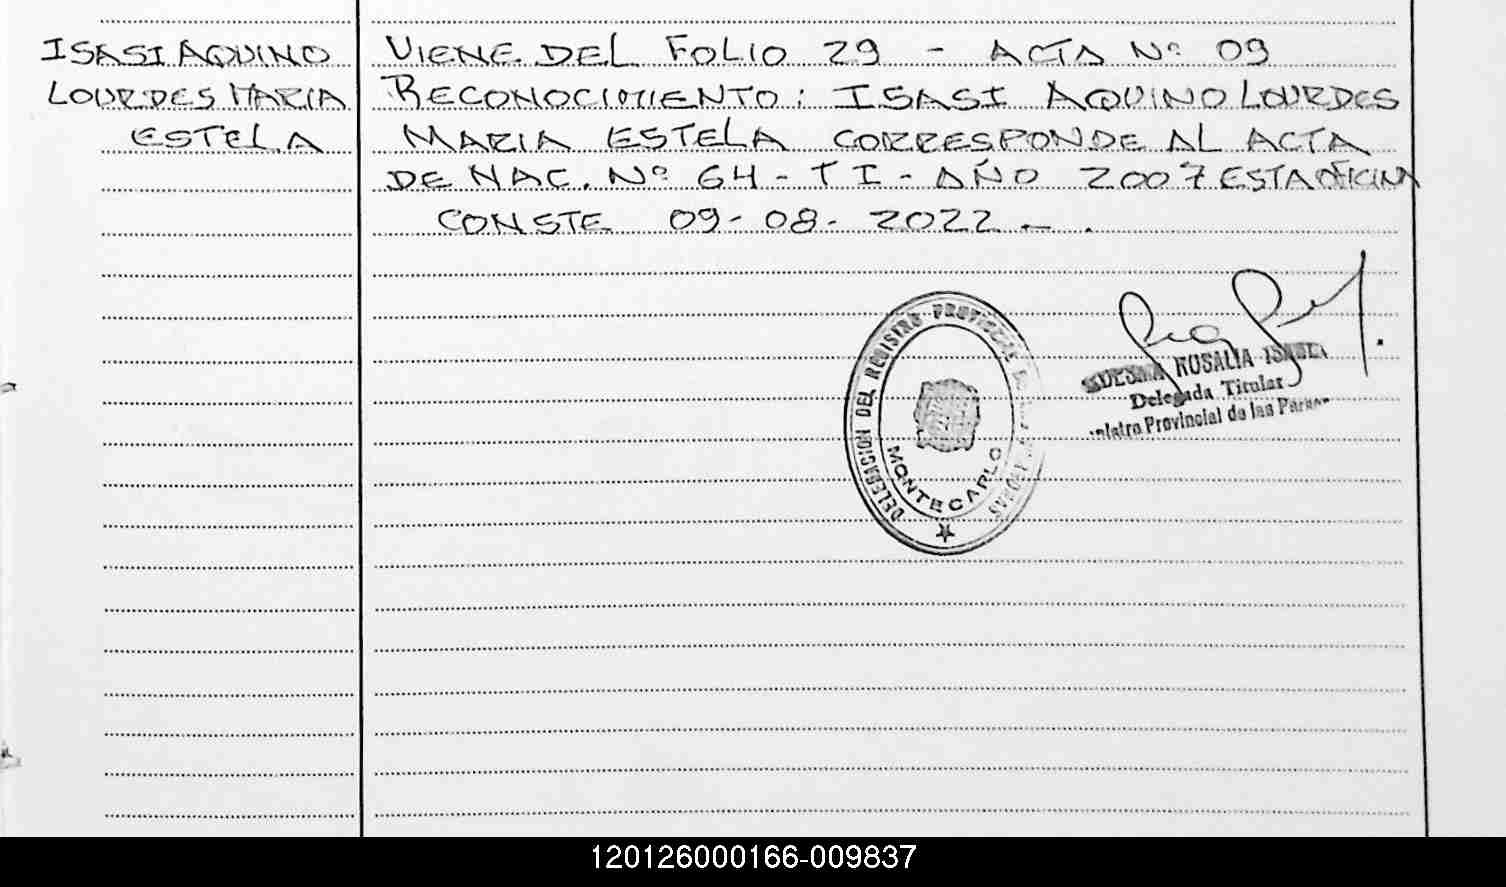 ISASI AQUINO
LOURDES MARIA
ESTELA
VIENE DEL FOLIO 29 - ACTA Nº 09
RECONOCIMIENTO: ISASI AQUINO LOURDES
MARIA ESTELA CORRESPONDE AL ACTA
DE NAC. Nº 64 - T I - AÑO 2007 ESTA OFICINA
CONSTE 09-08-2022 - .
DELEGACION DEL REGISTRO PROVINCIAL DE LAS PERSONAS
MONTECARLO
ROSALIA ISABEL
Delegada Titular
Provincial de las
120126000166-009837